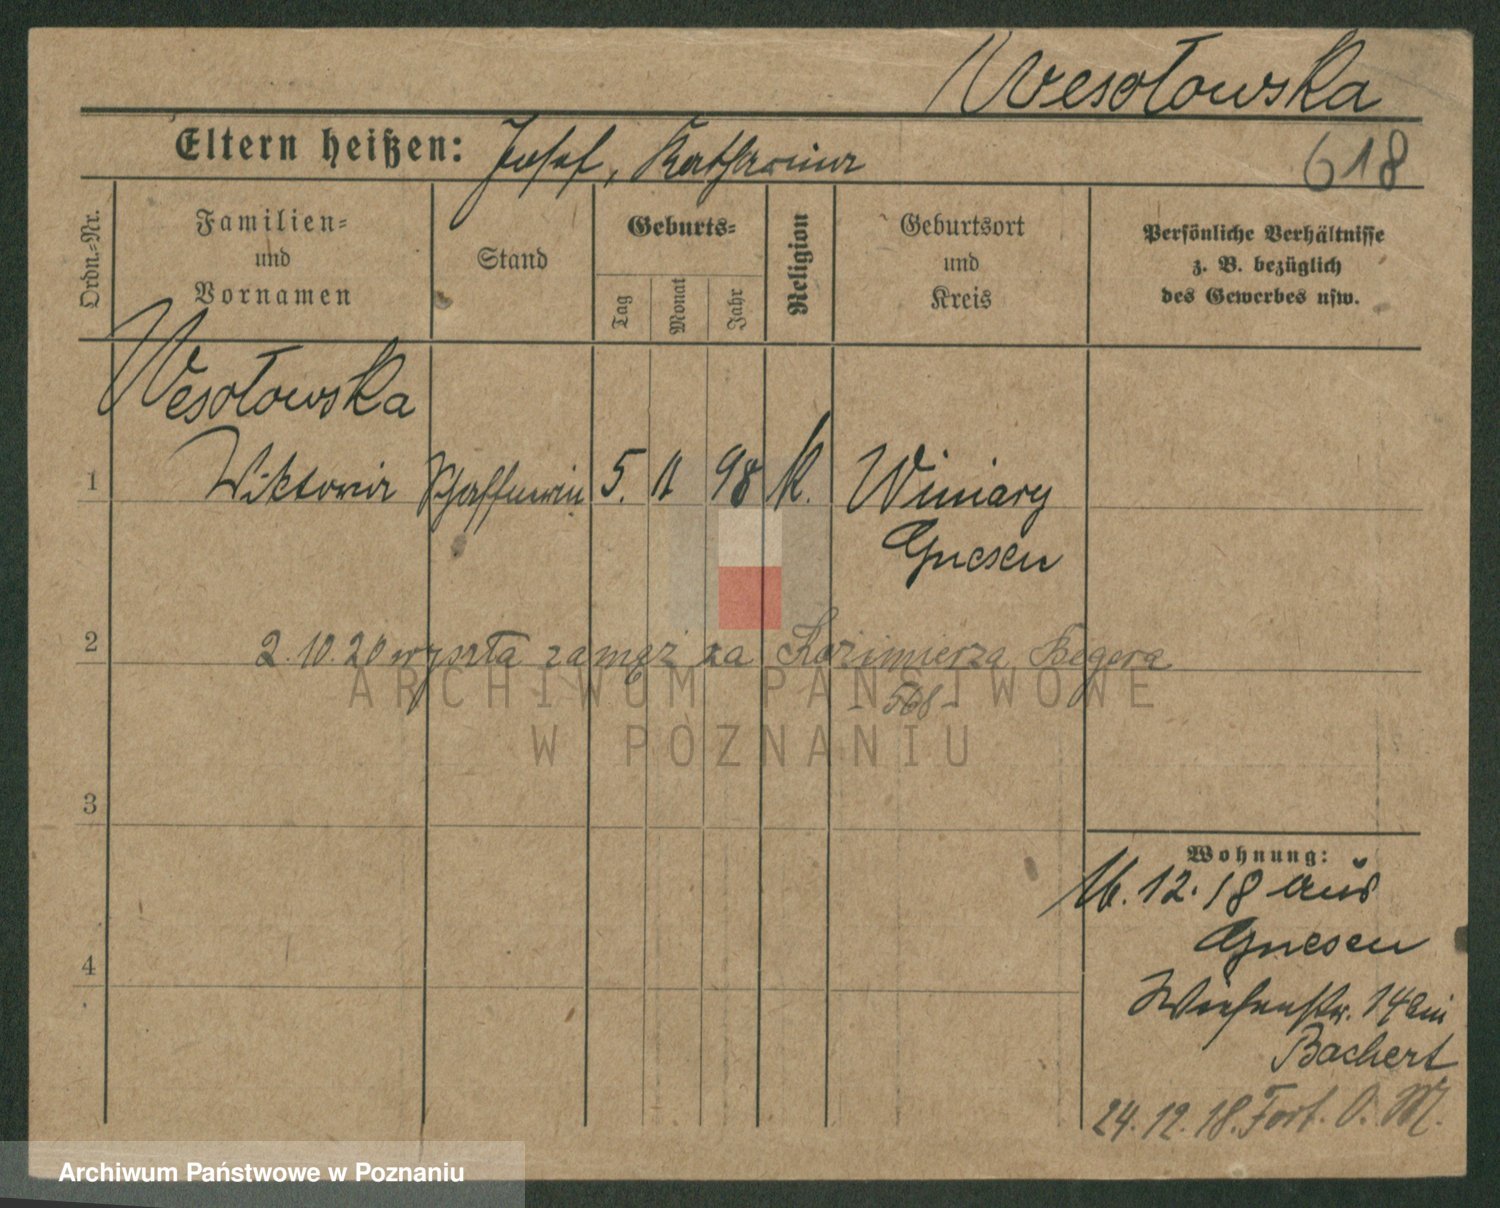 Wesołowska
Eltern heißen: Josef, Katharina
618
Ordn.-Nr.
Familien-
und
Vornamen
Stand
Geburts-
Tag
Monat
Jahr
Religion
Geburtsort
und
Kreis
Persönliche Verhältnisse
z. B. bezüglich
des Gewerbes usw.
Wesołowska
1 Wiktoria Schaffnerin 5. 11 98 K. Winiary
Gnesen
2 2.10.20 wyszła zamąż za Kazimierza
- 568 -
3
Wohnung:
16.12.18 aus
Gnesen
4
Wiesenstr. 14 bei
Bachert
24.12.18. Fort. O. M.
ARCHIWUM PAŃSTWOWE
W POZNANIU
Archiwum Państwowe w Poznaniu